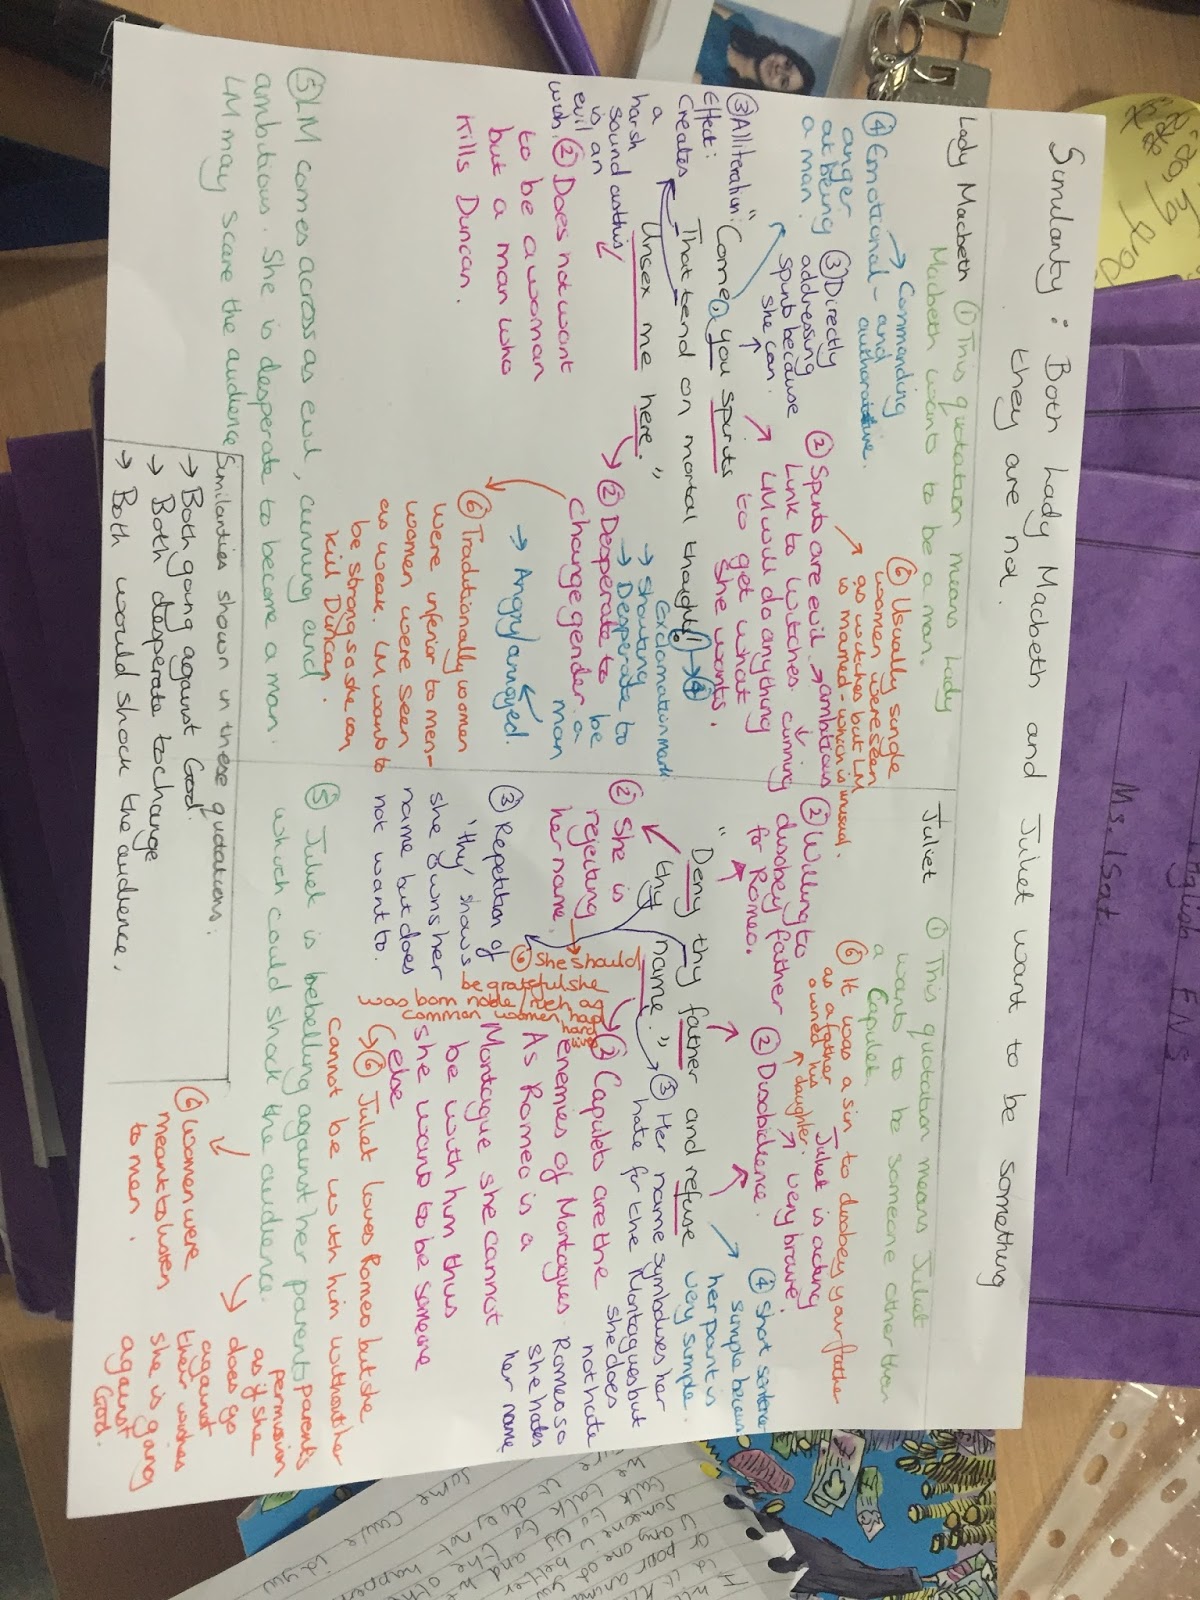 Similarity : Both Lady Macbeth and Juliet want to be something
they are not.
Lady Macbeth
① This quotation means Lady
Macbeth wants to be a man.
④ Emotional -
anger
at being
a man.
→ Commanding
and
authoratitive.
③ Directly
addressing
spirits because
she can.
⑥ Usually single
women were seen
as witches but LM
is married - which is
unusual.
② Spirits are evil → ambitious
Link to witches. cunning
LM will do anything
to get what
she wants.
③ Alliteration:
Effect:
Creates
a
harsh
sound as this
is an
evil
wish
"Come, you spirits
That tend on mortal thoughts!
Unsex me here."
④
Exclamation mark
→ shouting
→ Desperate to
be
a
man
→ Angry/annoyed.
② Does not want
to be a woman
but a man who
kills Duncan.
② Desperate to
change gender.
⑥ Traditionally women
were inferior to men -
women were seen
as weak. LM wants to
be strong so she can
kill Duncan.
⑤ LM comes across as evil, cunning and
ambitious. She is desperate to become a man.
LM may scare the audience
Juliet
① This quotation means Juliet
wants to be someone other than
a Capulet.
⑥ It was a sin to disobey your father
as a father
owned his
daughter.
Juliet is acting
very brave.
② Willing to
disobey father
for Romeo.
② Disobidence.
④ Short sentence
simple because
her point is
very simple.
"Deny thy father and refuse
thy name."
② She is
rejecting
her name.
③ Repetition of
'thy' shows
she owns her
name but does
not want to.
③ Her name symbolises her
hate for the Montagues but
she does
not hate
Romeo so
she hates
her name
⑥ She should
be grateful she
was born noble/rich as
common women had
② Capulets are the
enemies of Montagues.
As Romeo is a
Montague she cannot
be with him thus
she wants to be someone
else
⑥ Juliet loves Romeo but she
cannot be with him without her
parent's
permission
as if she
does go
against
their wishes
she is going
against
God.
⑤ Juliet is rebelling against her parents
which could shock the audience.
⑥ Women were
meant to listen
to men.
Similarities shown in these quotations.
→ Both going against God.
→ Both desperate to change
→ Both would shock the audience.
English EN5
Ms. Isat